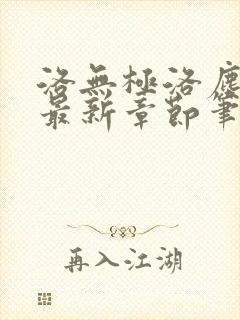 洛無極洛塵
最新章節筆
再入江湖